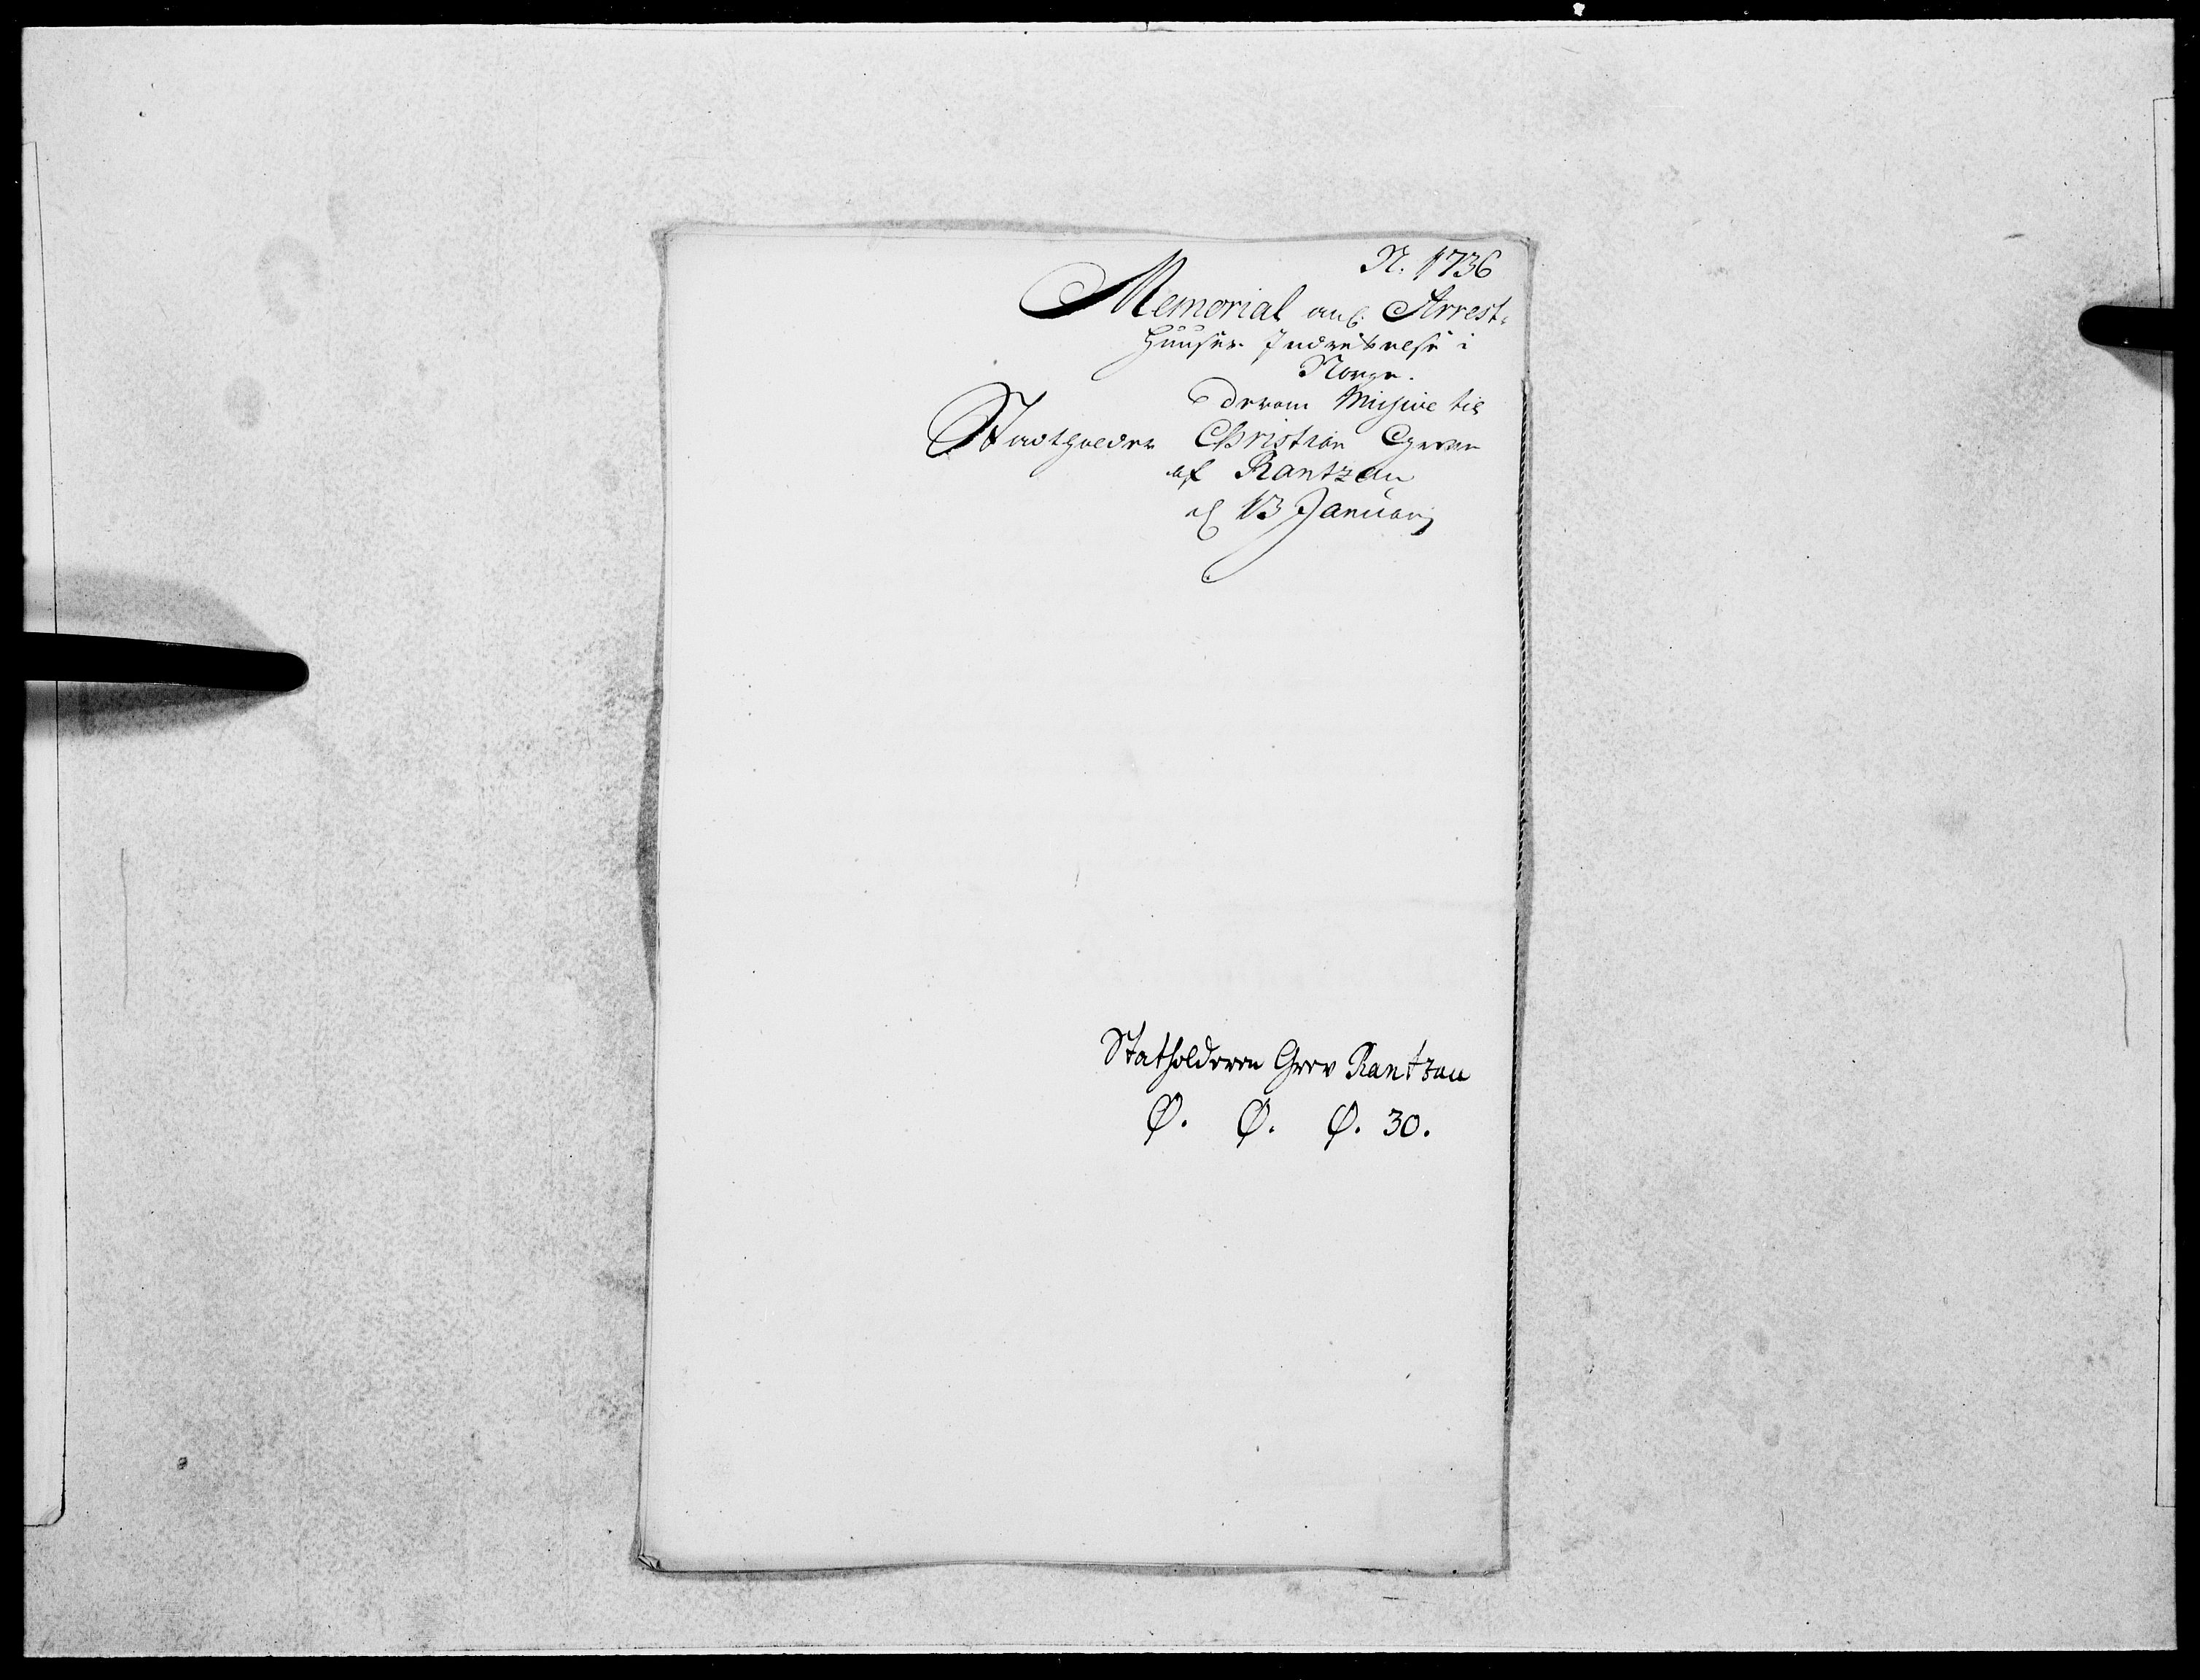 N. 1736
Memorial ang. Arrest-
Huuses Indrettelse i
Norge.
derom Missive til
Stadtholder Christian Greve
af Rantzau
d 13 Januarij
Statholderen Grev Rantzau
Q. Q. Q. 30.